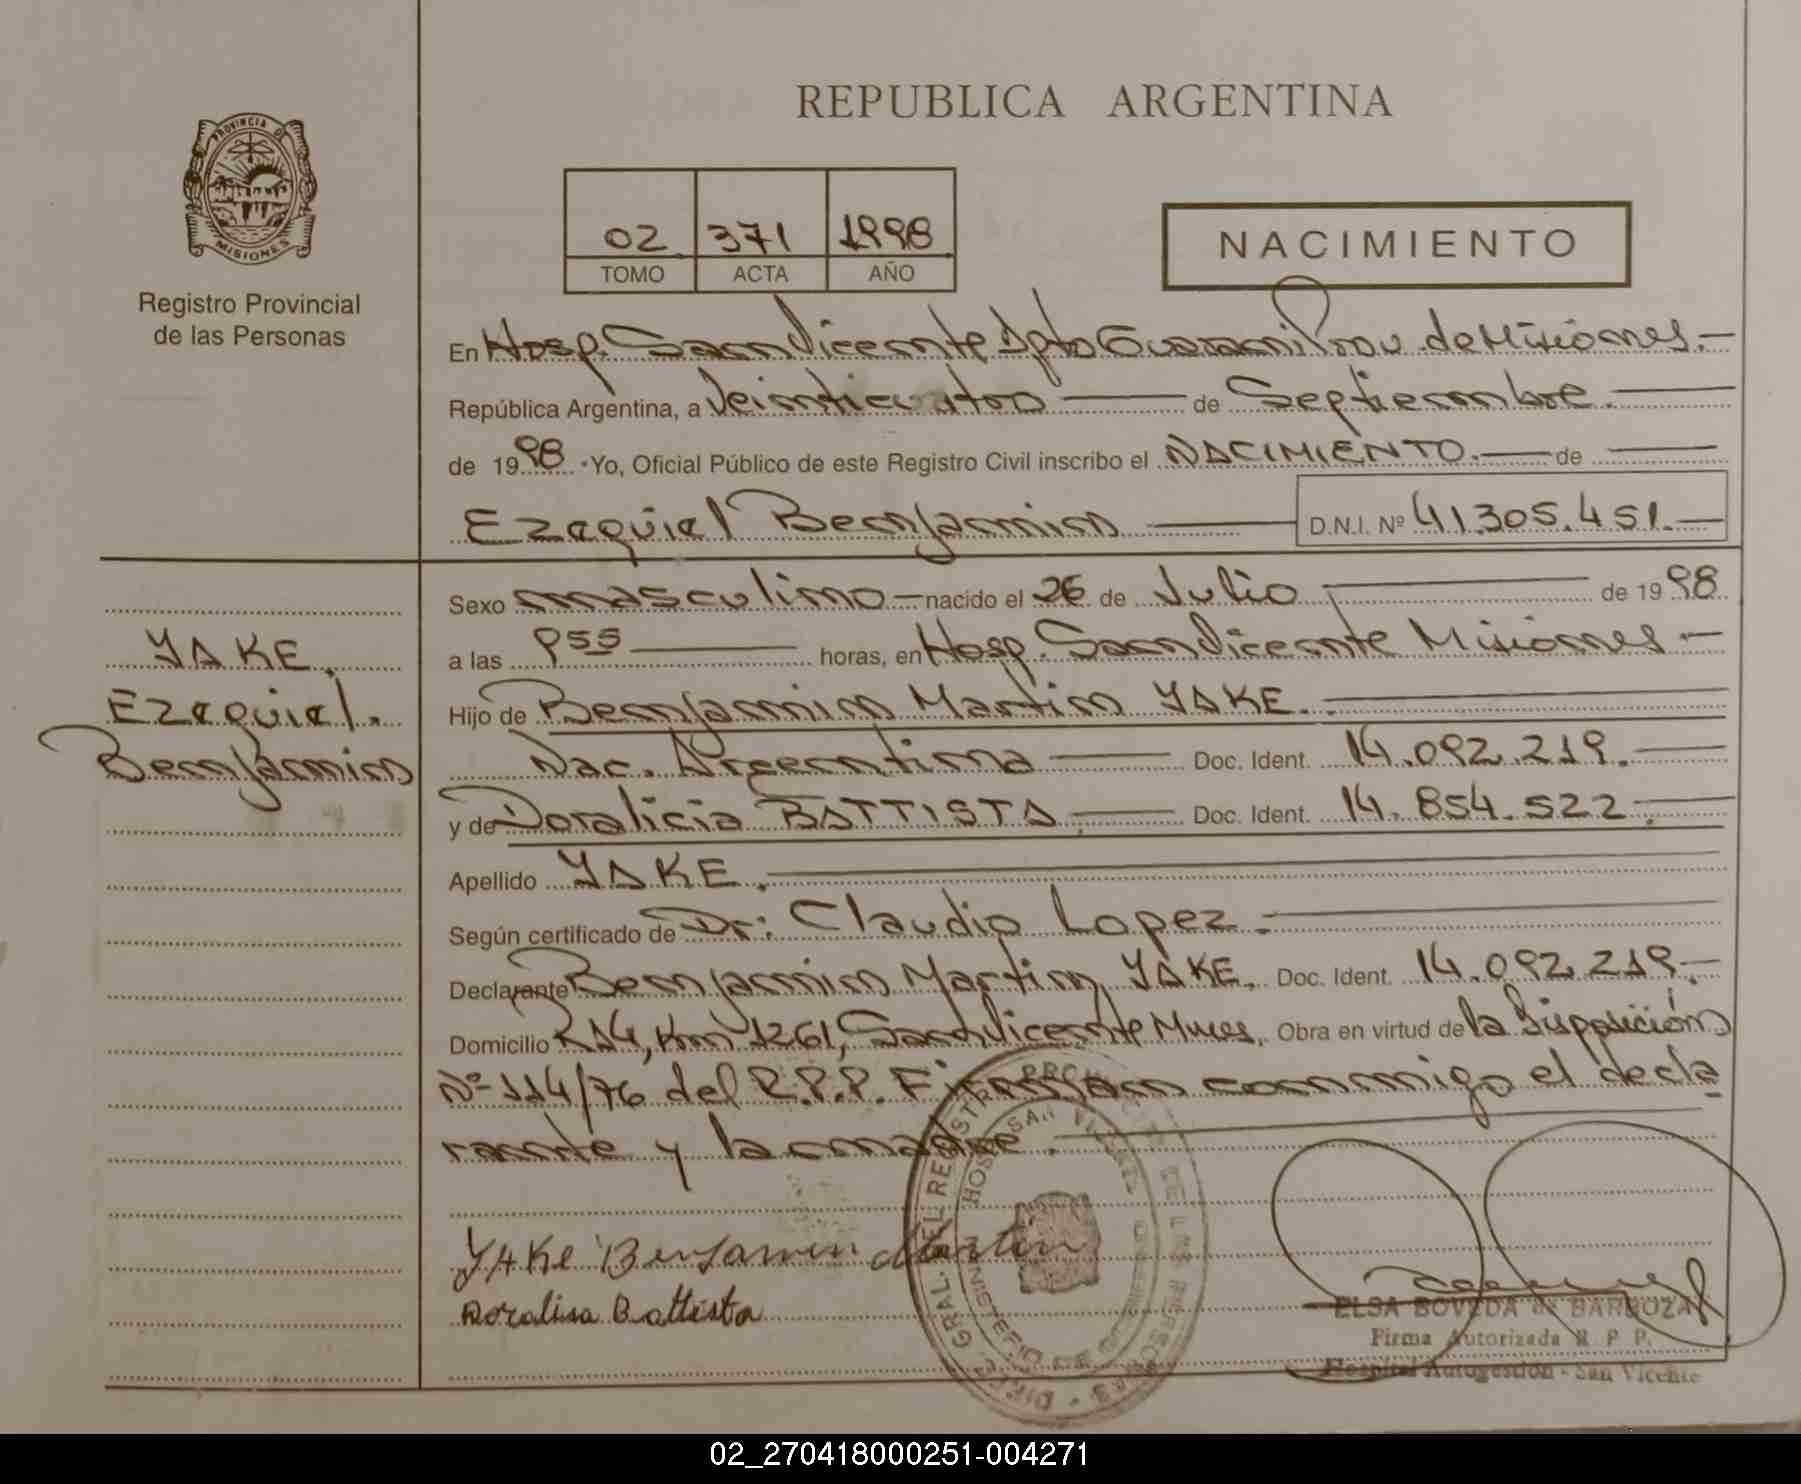 REPUBLICA ARGENTINA
PROVINCIA DE
MISIONES
Registro Provincial
de las Personas
02 371 1998
TOMO ACTA AÑO
NACIMIENTO
En Hosp. San Vicente Dpto Guarani Prov. de Misiones.-
República Argentina, a Veinticuatro de Septiembre.
de 1998. Yo, Oficial Público de este Registro Civil inscribo el NACIMIENTO. de
Ezequiel Benjamin D.N.I. Nº 41.305.451.
Sexo masculino - nacido el 26 de Julio de 1998
a las 9 55 horas, en Hosp. San Vicente Misiones -
Hijo de Benjamin Martin YAKE.
Nac. Argentina Doc. Ident. 14.092.219.
y de Doralicia BATTISTA. Doc. Ident. 14.854.522.
Apellido YAKE.
Según certificado de Dr: Claudio Lopez.
Declarante Benjamin Martin YAKE. Doc. Ident. 14.092.219.-
Domicilio R14, Km 1261, San Vicente Mnes. Obra en virtud de la Disposición
Nº 114/76 del R.P.P. Firman conmigo el decla
rante y la madre.
YAKE.
Ezequiel.
Benjamin
YAKe Benjamin Martin
Doralisa Battista
ELSA BOVEDA de BARBOZA
Firma Autorizada R. P. P.
Hospital Autogestión - San Vicente
02_270418000251-004271